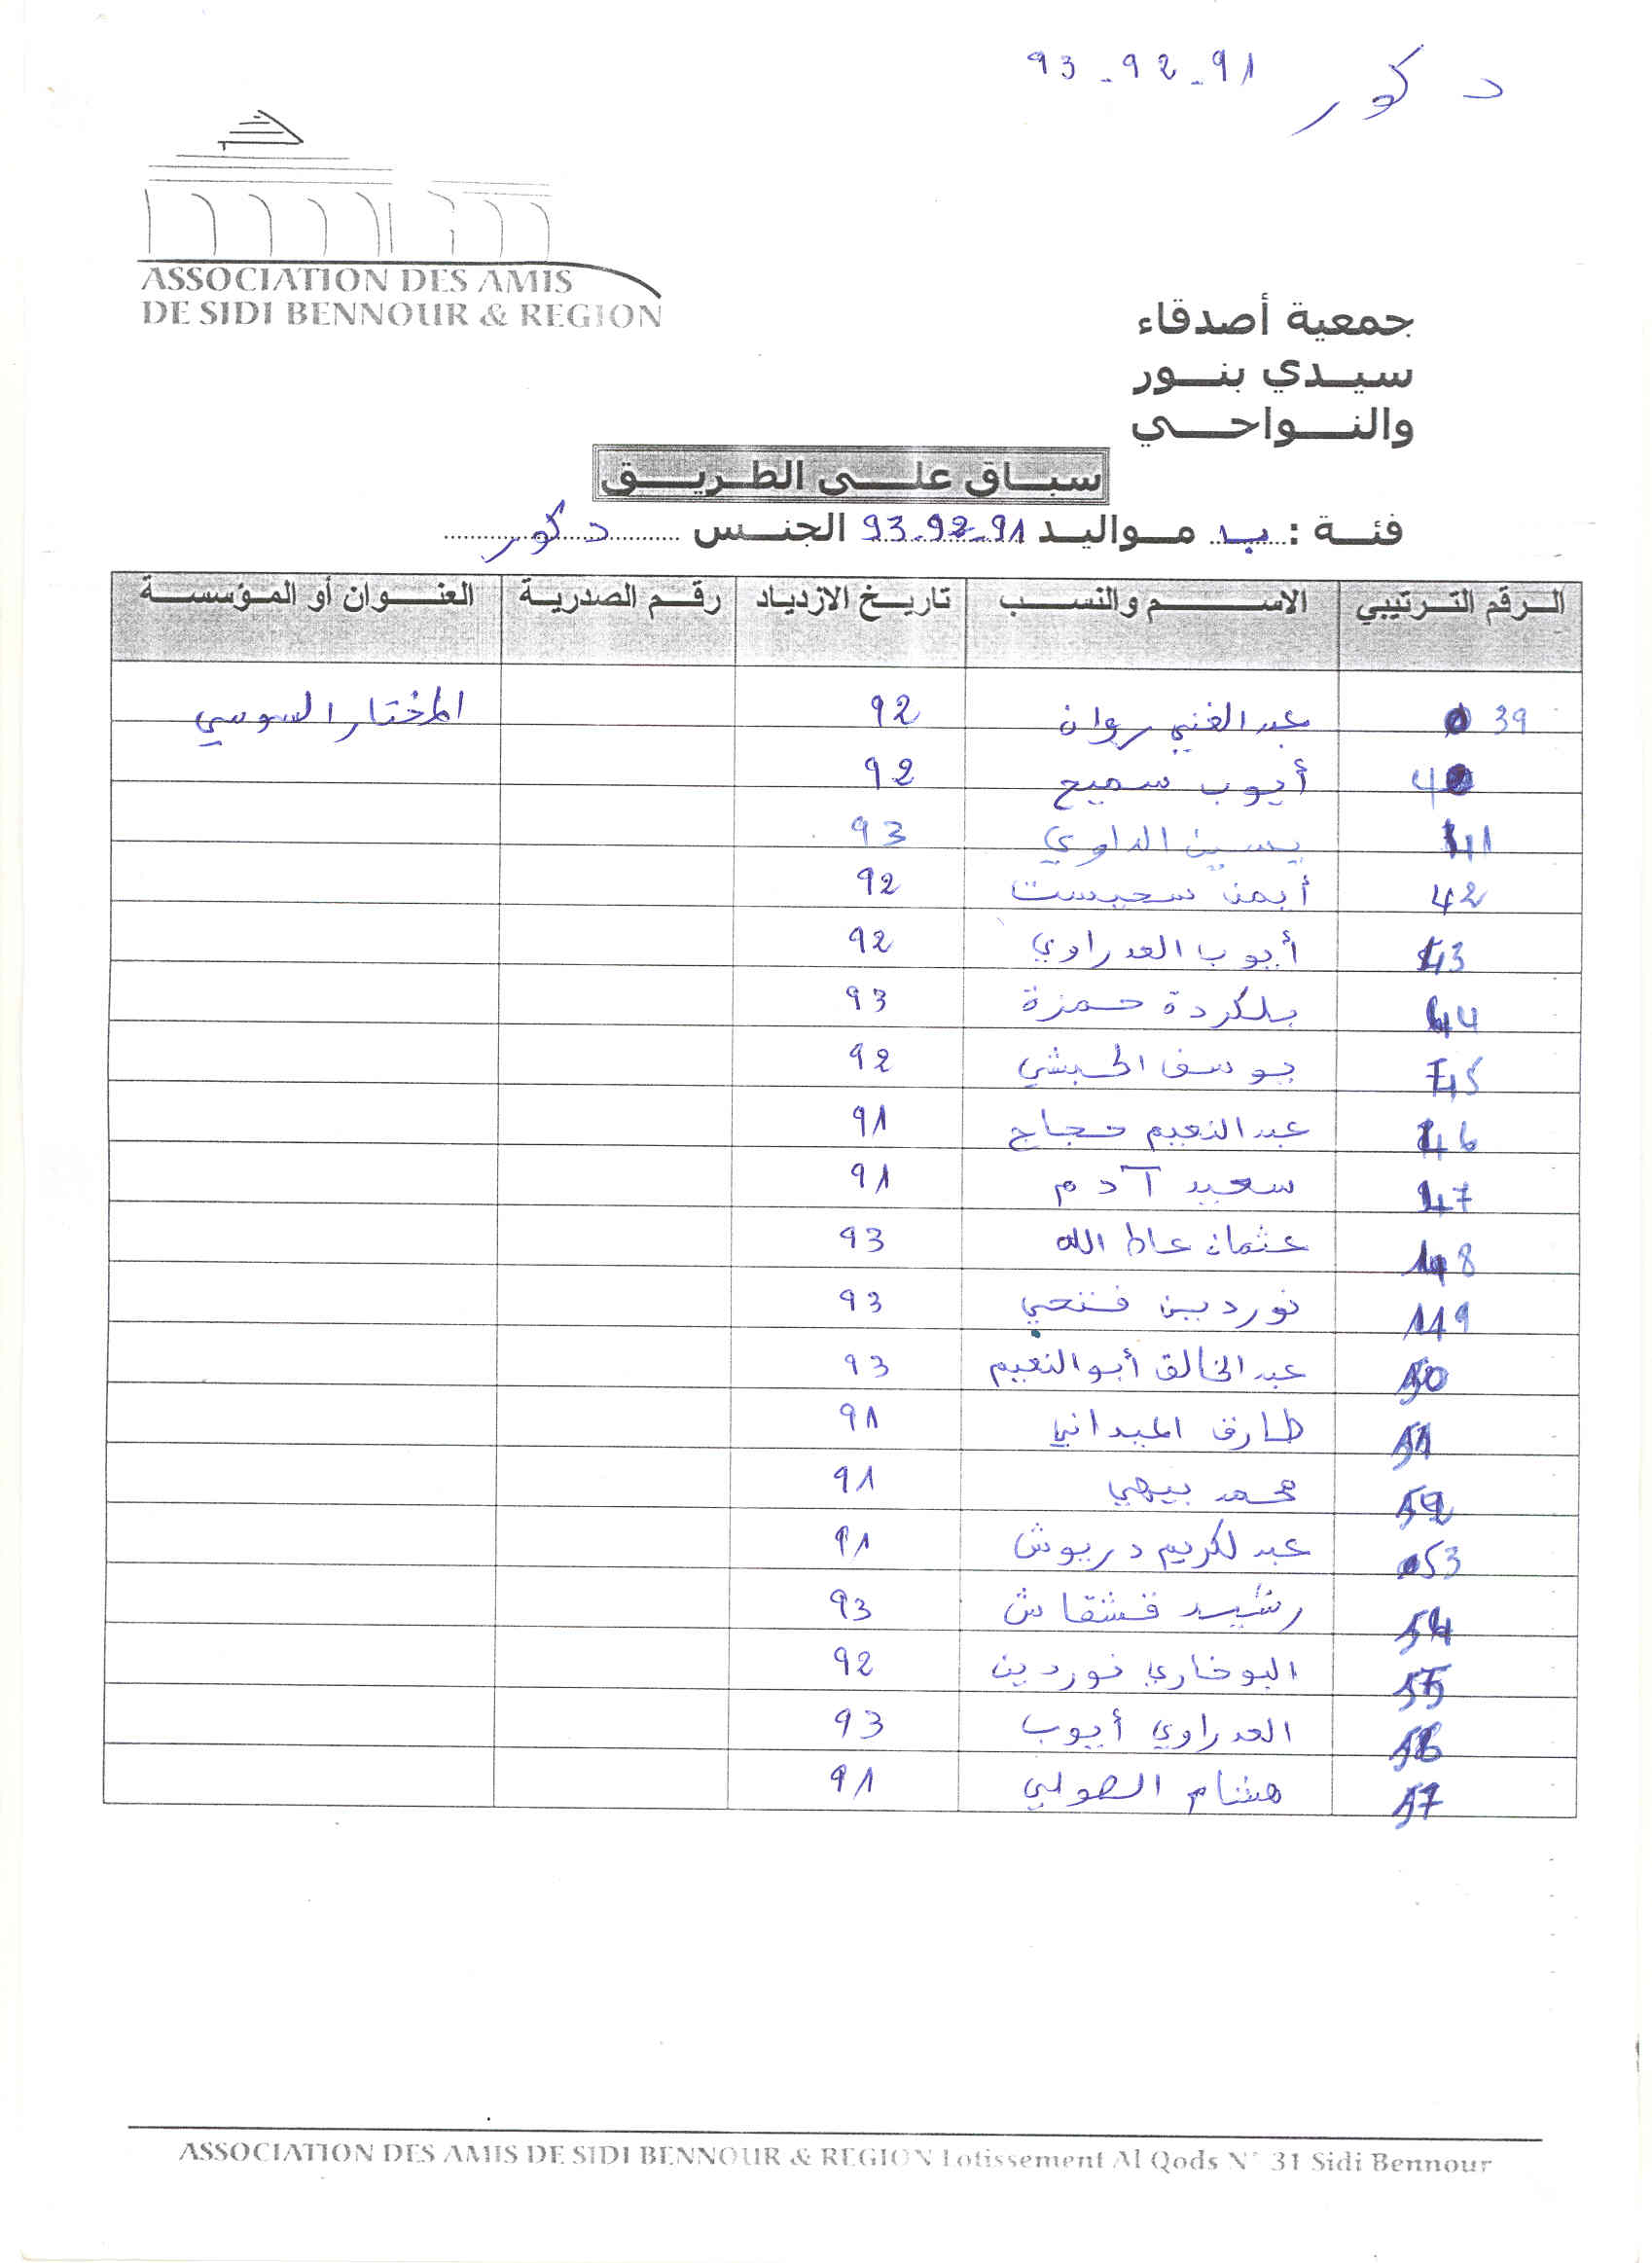 دكور 91-92-93
ASSOCIATION DES AMIS
DE SIDI BENNOUR & REGION
جمعية أصدقاء
سيدي بنور
والنواحي
سباق على الطريق
فئة : ب مواليد 91-92-93 الجنس دكور
الرقم الترتيبي الاسم والنسب تاريخ الازدياد رقم الصدرية العنوان أو المؤسسة
39 عبد الغني روان 92 المختار السوسي
40 أيوب سميح 92
41 يسين الداوي 93
42 أيمن سحبست 92
43 أيوب العدراوي 92
44 بلكردة حمزة 93
45 يوسف الحبشي 92
46 عبد النعيم حجاج 91
47 سعيد آدم 91
48 عثمان عاط الله 93
49 نوردين فتحي 93
50 عبد الخالق أبو النعيم 93
51 طارق الميداني 91
52 محمد بيهي 91
53 عبد لكريم دريوش 91
54 رشيد قشقاش 93
55 البوخاري نوردين 92
56 العدراوي أيوب 93
57 هشام الصولي 91
ASSOCIATION DES AMIS DE SIDI BENNOUR & REGION Lotissement Al Qods N° 31 Sidi Bennour